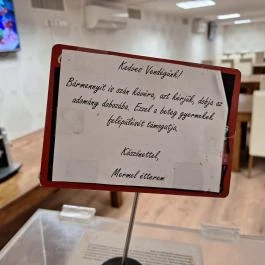 Kedves Vendégünk!
Bármennyit is szán kávéra, azt kérjük, dobja az
adomány dobozába. Ezzel a beteg gyermekek
felépülését támogatja.
Köszönettel,
Mormel étterem